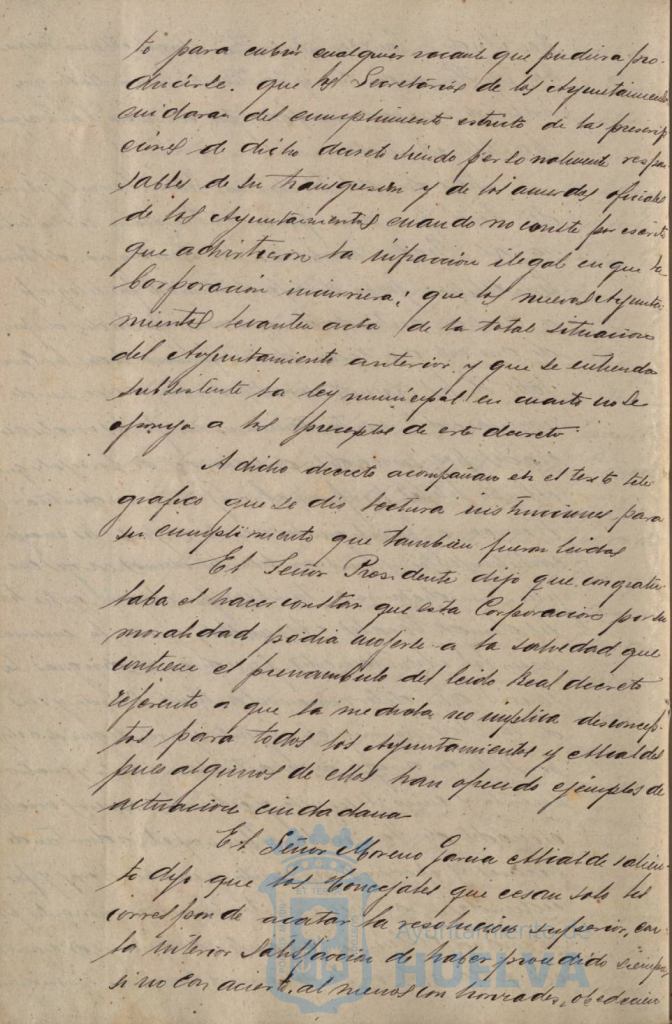 to para cubrir cualquier vacante que pudiera pro-
ducirse. que los Secretarios de los Ayuntamientos
cuidaran del cumplimiento estricto de las prescrip
ciones de dicho decreto siendo personalmente respon
sables de su transgresion y de los acuerdos oficiales
de los Ayuntamientos cuando no conste por escrito
que advirtieron la infracción ilegal en que la
Corporación incurriera; que los nuevos Ayunta-
mientos levanten acta de la total situacion
del Ayuntamiento anterior. y que se entienda
subsistente la ley municipal en cuanto no se
oponga a los preceptos de este decreto.
A dicho decreto acompañan en el texto tele
grafico que se dio lectura instrucciones para
su cumplimiento que tambien fueron leidas
El Señor Presidente dijo que congratu
laba el hacer constar que esta Corporacion por su
moralidad podia acojerse a la salvedad que
contiene el preambulo del leido Real decreto
referente a que la medida no implica desconcep-
tos para todos los Ayuntamientos y Alcaldes
pues algunos de ellos han ofrecido ejemplos de
actuacion ciudadana
El Señor Moreno Garcia Alcalde salien-
te dijo que los Concejales que cesan solo les
corresponde acatar la resolucion superior, con
la interior satisfaccion de haber procedido siempre,
si no con acierto, al menos con honradez, obedecien
Ayuntamiento de
HUELVA